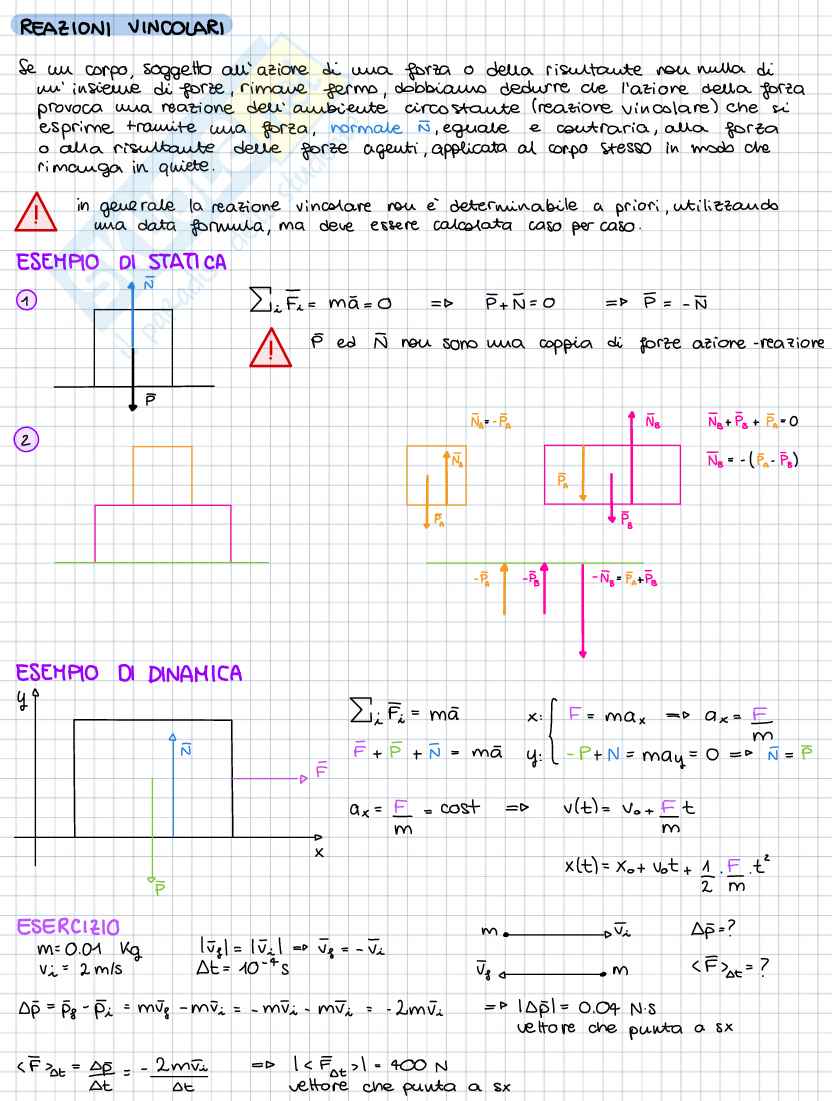 REAZIONI VINCOLARI
Se un corpo, soggetto all'azione di una forza o della risultante non nulla di
un'insieme di forze, rimane fermo, dobbiamo dedurre che l'azione della forza
provoca una reazione dell'ambiente circostante (reazione vincolare) che si
esprime tramite una forza, normale N̄, eguale e contraria, alla forza
o alla risultante delle forze agenti, applicata al corpo stesso in modo che
rimanga in quiete.
! in generale la reazione vincolare non è determinabile a priori, utilizzando
una data formula, ma deve essere calcolata caso per caso.
ESEMPIO DI STATICA
1 N̄ P̄ ∑ᵢ F̄ᵢ = mā = 0 ⇒ P̄ + N̄ = 0 ⇒ P̄ = -N̄
! P̄ ed N̄ non sono una coppia di forze azione-reazione
2 N̄_A = -P̄_A N̄_B N̄_B + P̄_B + P̄_A = 0
N̄_A P̄_A N̄_B = -(P̄_A - P̄_B)
P̄_A P̄_B
-P̄_A -P̄_B -N̄_B = P̄_A + P̄_B
ESEMPIO DI DINAMICA
y N̄ F̄ P̄ x
∑ᵢ F̄ᵢ = mā x: { F = maₓ ⇒ aₓ = F/m
F̄ + P̄ + N̄ = mā y: { -P + N = ma_y = 0 ⇒ N̄ = P̄
aₓ = F/m = cost ⇒ v(t) = v₀ + F/m t
x(t) = x₀ + v₀t + 1/2 · F/m · t²
ESERCIZIO
m = 0.01 Kg |v̄_f| = |v̄ᵢ| ⇒ v̄_f = -v̄ᵢ m v̄ᵢ Δp̄ = ?
vᵢ = 2 m/s Δt = 10⁻⁴ s v̄_f m <F̄>_Δt = ?
Δp̄ = p̄_f - p̄ᵢ = mv̄_f - mv̄ᵢ = -mv̄ᵢ - mv̄ᵢ = -2mv̄ᵢ ⇒ |Δp̄| = 0.04 N·s
vettore che punta a sx
<F̄>_Δt = Δp̄/Δt = - 2mv̄ᵢ/Δt ⇒ |<F̄_Δt>| = 400 N
vettore che punta a sx